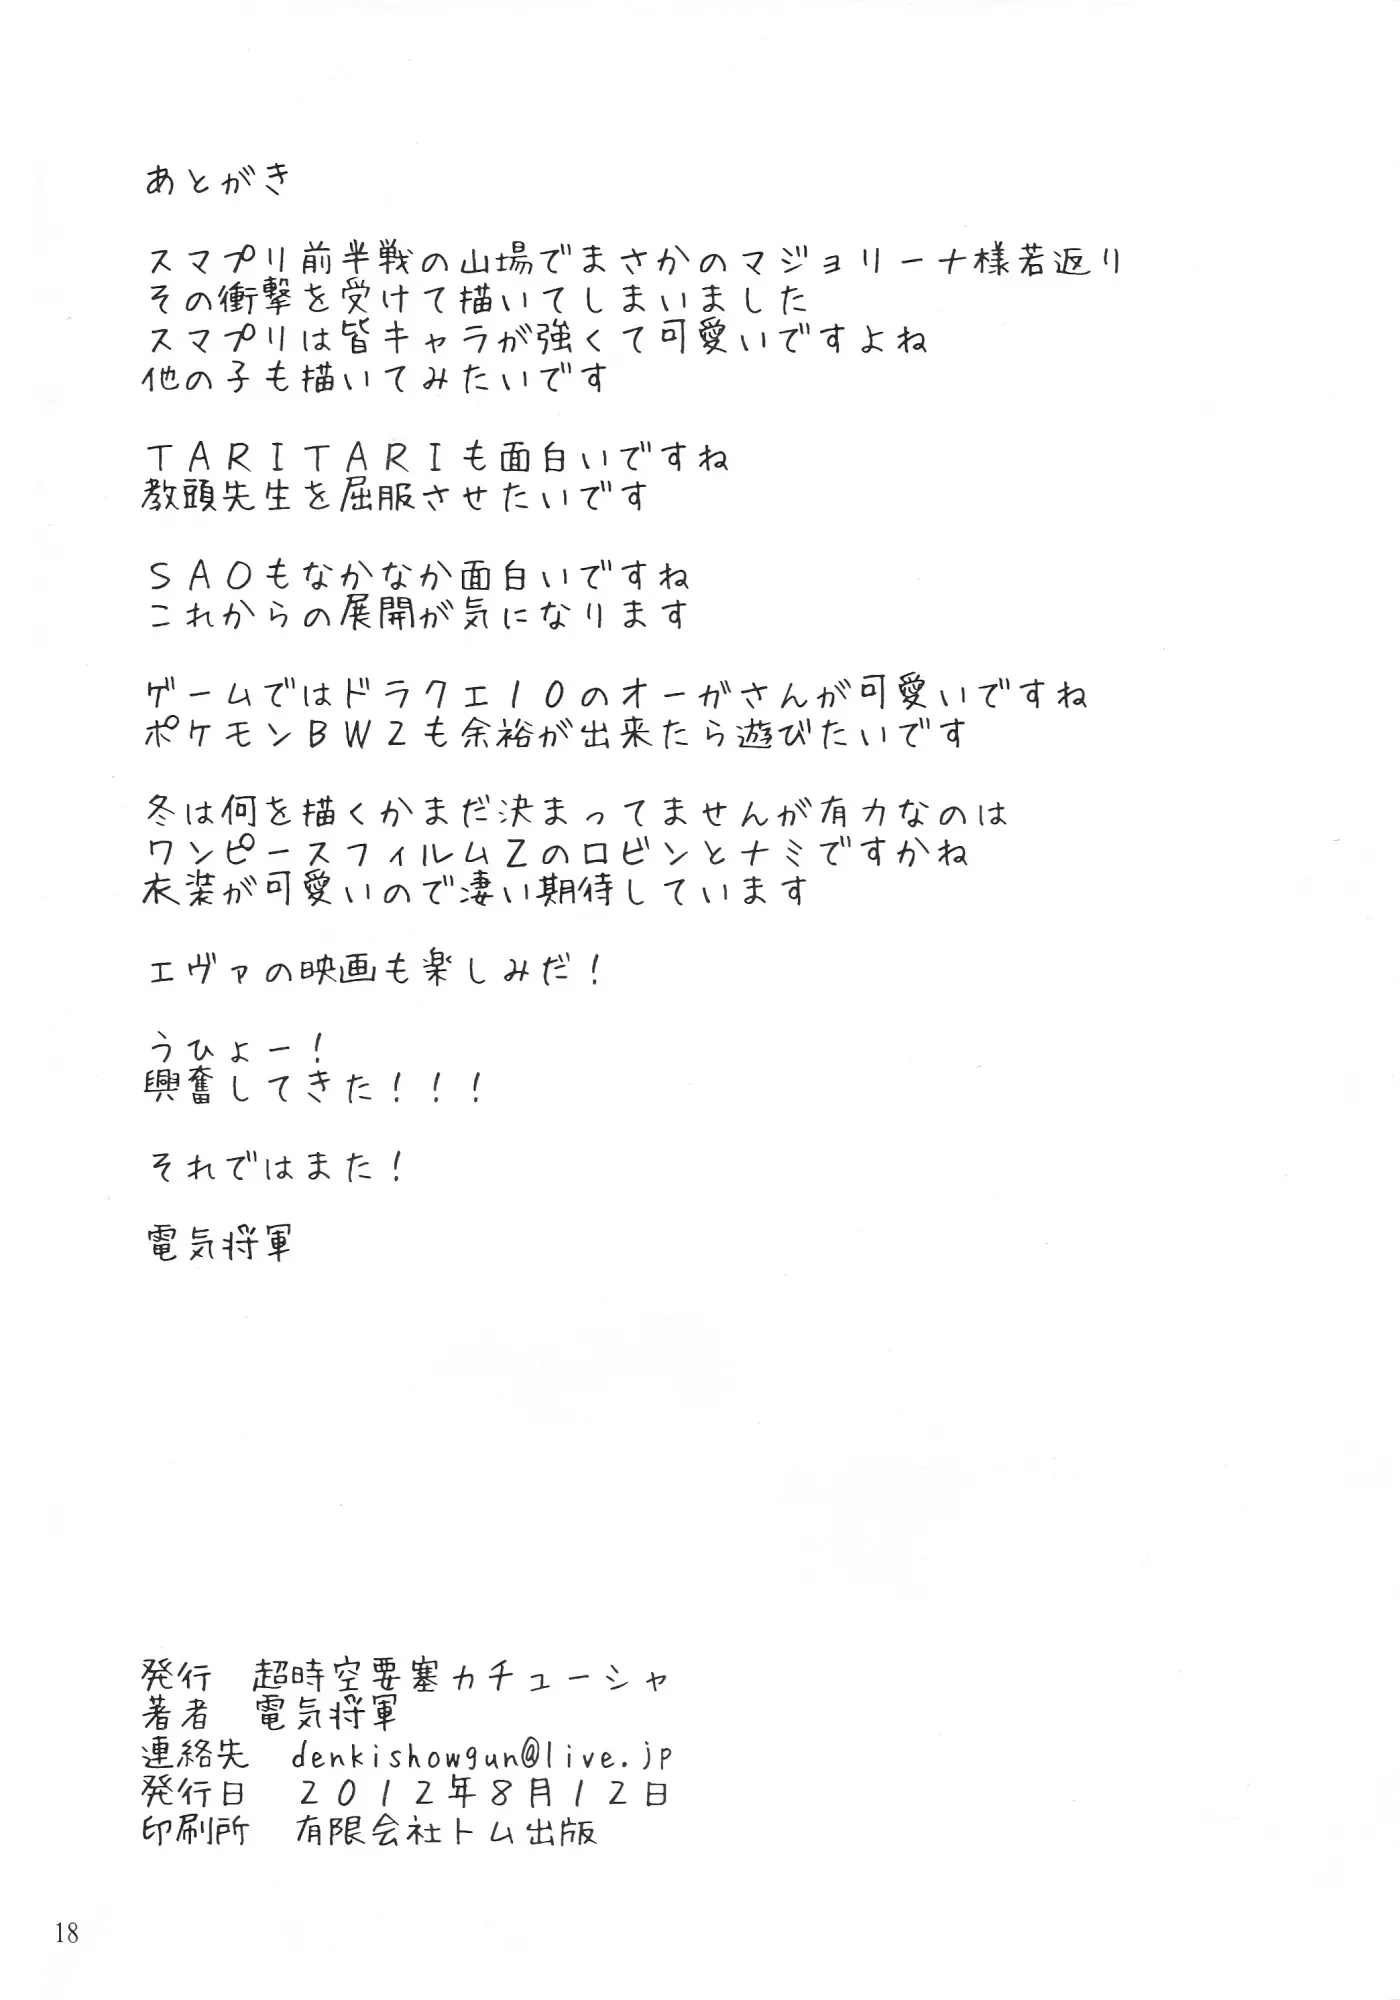 あとがき
スマプリ前半戦の山場でまさかのマジョリーナ様若返り
その衝撃を受けて描いてしまいました
スマプリは皆キャラが強くて可愛いですよね
他の子も描いてみたいです
ＴＡＲＩＴＡＲＩも面白いですね
教頭先生を屈服させたいです
ＳＡＯもなかなか面白いですね
これからの展開が気になります
ゲームではドラクエ１０のオーガさんが可愛いですね
ポケモンＢＷ２も余裕が出来たら遊びたいです
冬は何を描くかまだ決まってませんが有力なのは
ワンピースフィルムＺのロビンとナミですかね
衣装が可愛いので凄い期待しています
エヴァの映画も楽しみだ！
うひょー！
興奮してきた！！！
それではまた！
電気将軍
発行　超時空要塞カチューシャ
著者　電気将軍
連絡先　denkishowgun@live.jp
発行日　２０１２年８月１２日
印刷所　有限会社トム出版
18